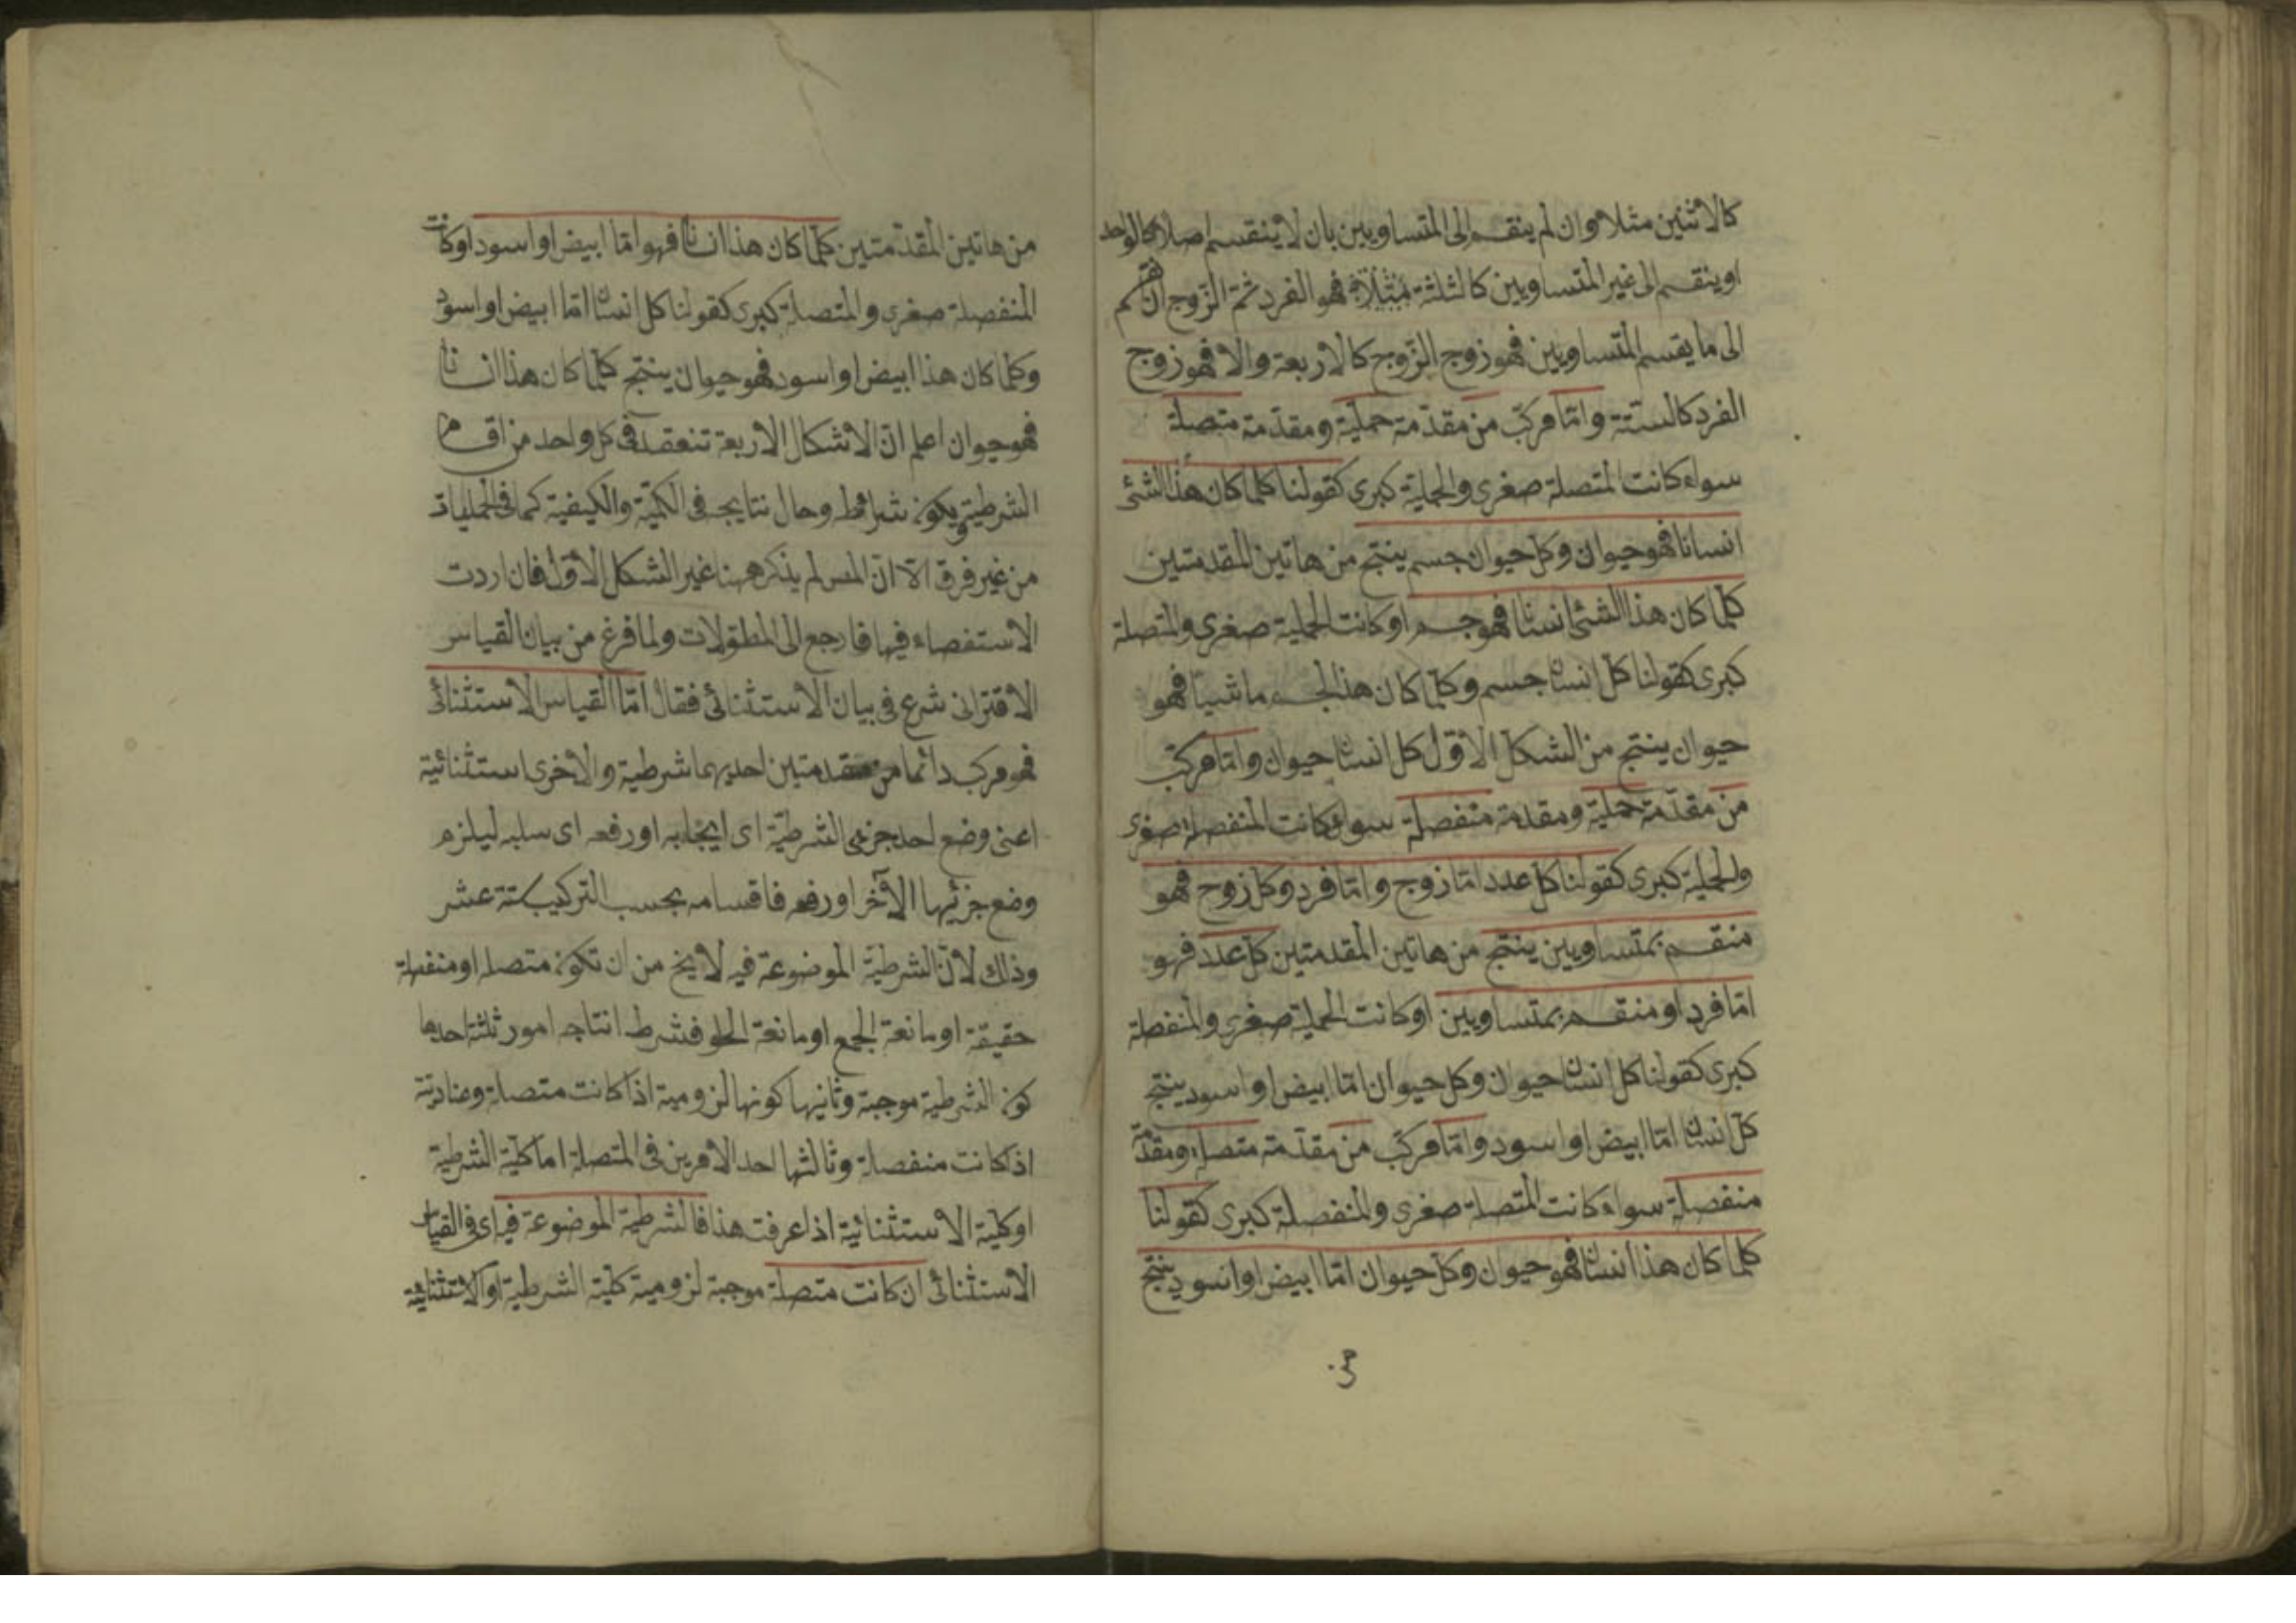 كالاثنين مثلا وان لم ينقسم الى المتساويين بان لا ينقسم اصلا كالواحد
او ينقسم الى غير المتساويين كالثلثة مثلا فهو الفرد ثم الزوج ان قسم
الى ما يقسم المتساويين فهو زوج الزوج كالاربعة والا فهو زوج
الفرد كالستة واما مركب من مقدمة حملية ومقدمة متصلة
سواء كانت المتصلة صغرى والحملية كبرى كقولنا كلما كان هذا الشئ
انسانا فهو حيوان وكل حيوان جسم ينتج من هاتين المقدمتين
كلما كان هذا الشئ انسانا فهو جسم او كانت الحملية صغرى والمتصلة
كبرى كقولنا كل انسان جسم وكلما كان هذا الجسم ماشيا فهو
حيوان ينتج من الشكل الاول كل انسان حيوان واما مركب
من مقدمة حملية ومقدمة منفصلة سواء كانت المنفصلة صغرى
والحملية كبرى كقولنا كل عدد اما زوج واما فرد وكل زوج فهو
منقسم بمتساويين ينتج من هاتين المقدمتين كل عدد فهو
اما فرد او منقسم بمتساويين او كانت الحملية صغرى والمنفصلة
كبرى كقولنا كل انسان حيوان وكل حيوان اما ابيض او اسود ينتج
كل انسان اما ابيض او اسود واما مركب من مقدمة متصلة ومقدمة
منفصلة سواء كانت المتصلة صغرى والمنفصلة كبرى كقولنا
كلما كان هذا انسانا فهو حيوان وكل حيوان اما ابيض او اسود ينتج
من هاتين المقدمتين كلما كان هذا انسانا فهو اما ابيض او اسود او كانت
المنفصلة صغرى والمتصلة كبرى كقولنا كل انسان اما ابيض او اسود
وكلما كان هذا ابيض او اسود فهو حيوان ينتج كلما كان هذا انسانا
فهو حيوان اعلم ان الاشكال الاربعة تنعقد فى كل واحد من اقسام
الشرطية ويكون شرائط وحال نتايجه فى الكمية والكيفية كما فى الحمليات
من غير فرق الا ان المص لم يذكر ههنا غير الشكل الاول فان اردت
الاستفصاء فيها فارجع الى المطولات ولما فرغ من بيان القياس
الاقترانى شرع فى بيان الاستثنائى فقال اما القياس الاستثنائى
فهو مركب دائما من مقدمتين احديهما شرطية والاخرى استثنائية
اعنى وضع احد جزئى الشرطية اى ايجابه او رفعه اى سلبه ليلزم
وضع جزئها الآخر او رفعه فاقسامه بحسب التركيب ستة عشر
وذلك لان الشرطية الموضوعة فيه لا يخ من ان تكون متصلة او منفصلة
حقيقة او مانعة الجمع او مانعة الخلو فشرط انتاجه امور ثلثة احدها
كون الشرطية موجبة وثانيها كونها لزومية اذا كانت متصلة وعنادية
اذ كانت منفصلة وثالثها احد الامرين فى المتصلة اما كلية الشرطية
او كلية الاستثنائية اذا عرفت هذا فالشرطية الموضوعة فيه اى فى القياس
الاستثنائى ان كانت متصلة موجبة لزومية كلية الشرطية او الاستثنائية